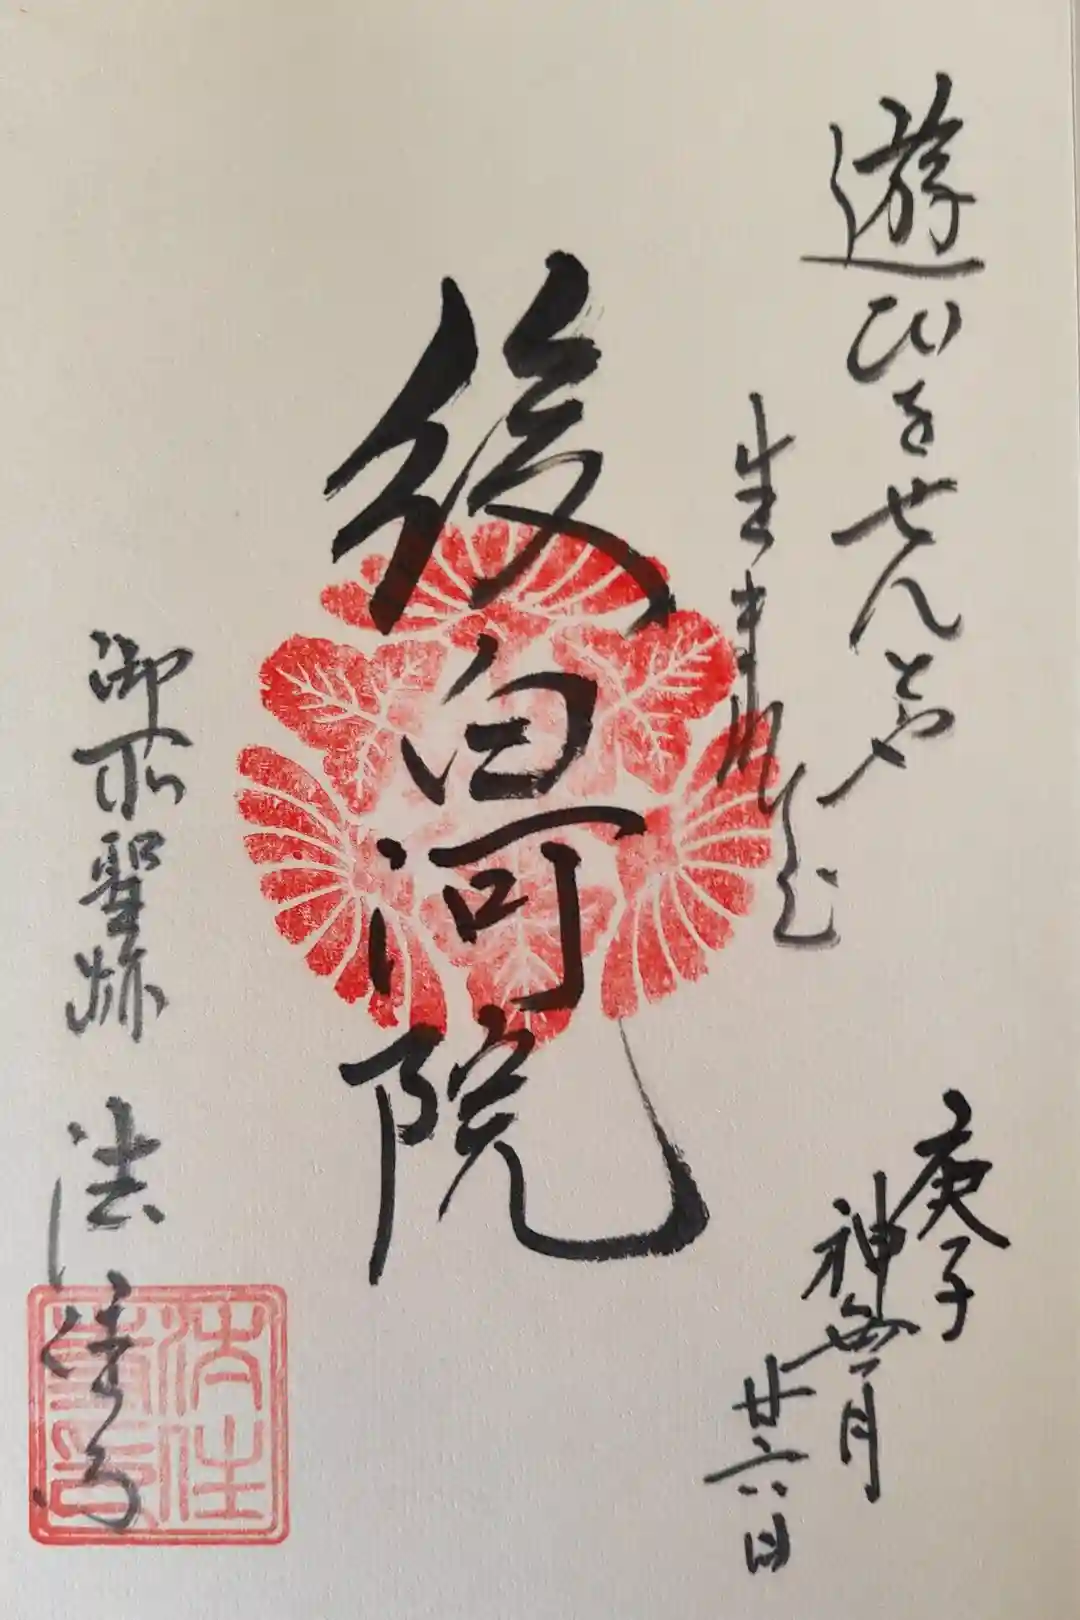 遊ひをせんとや
生まれけむ
庚子
神無月
廿六日
後白河院
御所聖跡 法住寺